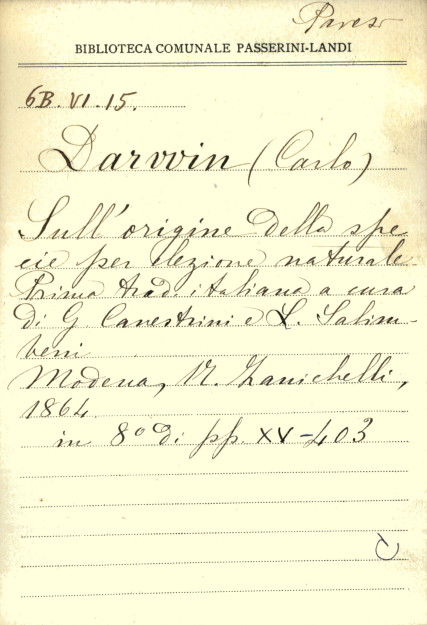 Pares
BIBLIOTECA COMUNALE PASSERINI-LANDI
6B. VI. 15.
Darwin (Carlo)
Sull'origine della spe
cie per elezione naturale
Prima trad. italiana a cura
di G. Canestrini e L. Salim-
beni
Modena, N. Zanichelli,
1864
in 8° di pp. XV-403